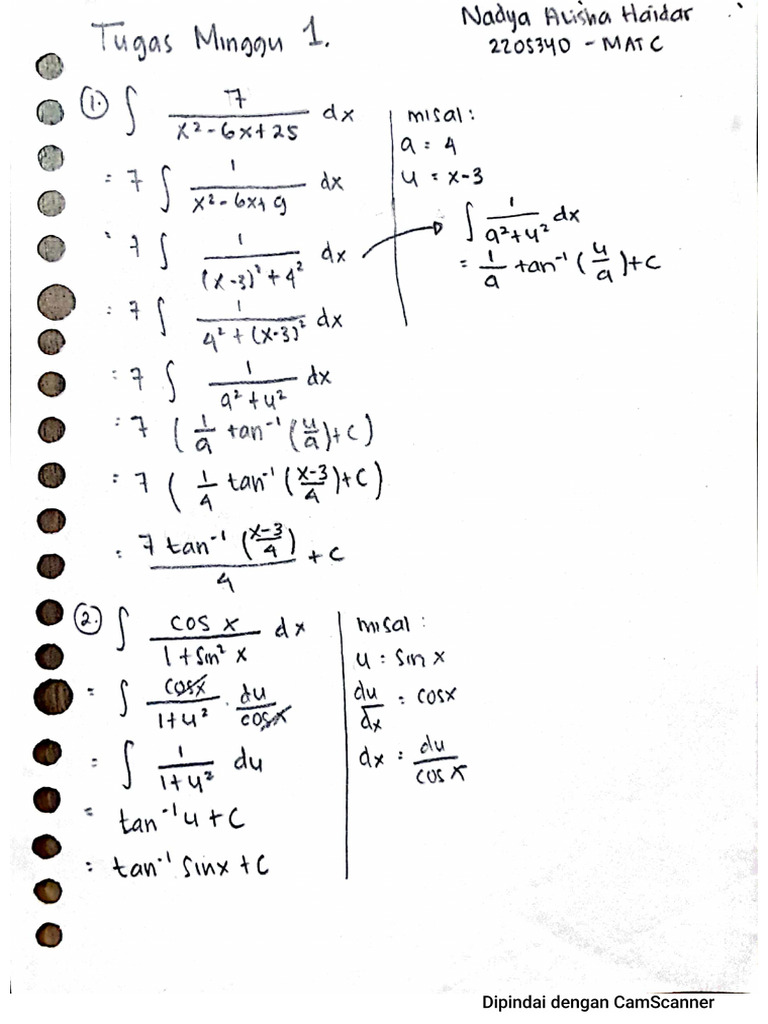 Tugas Minggu 1.
Nadya Alisha Haidar
2205340 - MAT C
1. ∫ 7 / (x² - 6x + 25) dx
= 7 ∫ 1 / (x² - 6x + 9) dx
= 7 ∫ 1 / ((x-3)² + 4²) dx
= 7 ∫ 1 / (4² + (x-3)²) dx
= 7 ∫ 1 / (a² + u²) dx
= 7 (1/a tan⁻¹ (u/a) + C)
= 7 (1/4 tan⁻¹ (x-3/4) + C)
= 7 tan⁻¹ (x-3/4) / 4 + C
misal :
a = 4
u = x-3
∫ 1 / (a² + u²) dx
= 1/a tan⁻¹ (u/a) + C
2. ∫ cos x / (1 + sin² x) dx
= ∫ cosx / (1 + u²) . du / cosx
= ∫ 1 / (1 + u²) du
= tan⁻¹ u + C
= tan⁻¹ sinx + C
misal :
u = sin x
du/dx = cosx
dx = du / cos x
Dipindai dengan CamScanner